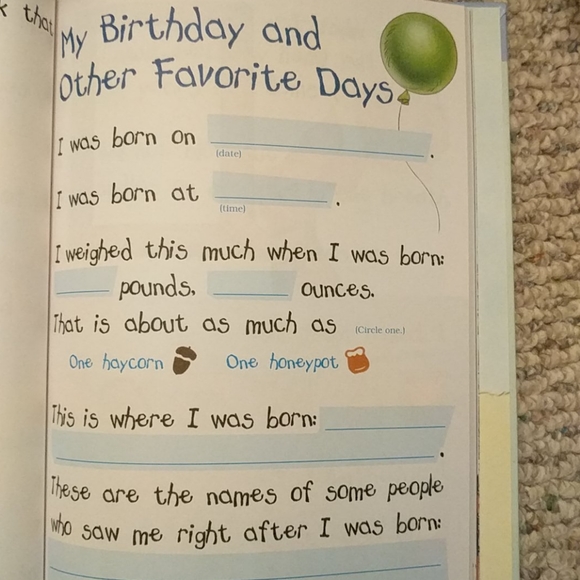 k that
My Birthday and
Other Favorite Days
I was born on .
(date)
I was born at .
(time)
I weighed this much when I was born:
pounds, ounces.
That is about as much as (Circle one.)
One haycorn One honeypot
This is where I was born:
.
These are the names of some people
who saw me right after I was born: